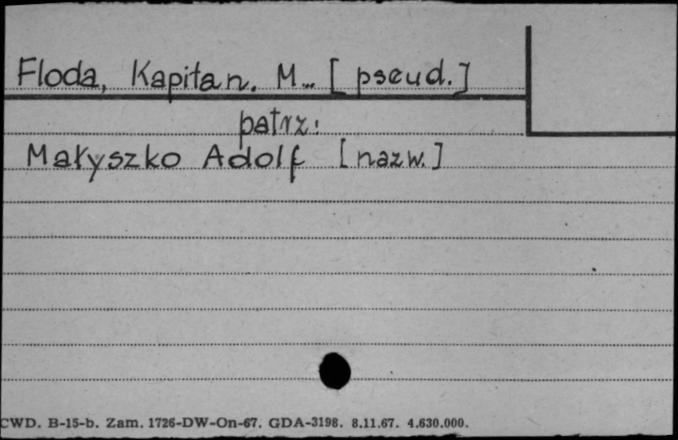 Floda, Kapitan. M... [pseud.]
patrz:
Małyszko Adolf [nazw.]
CWD. B-15-b. Zam. 1726-DW-On-67. GDA-3198. 8.11.67. 4.630.000.